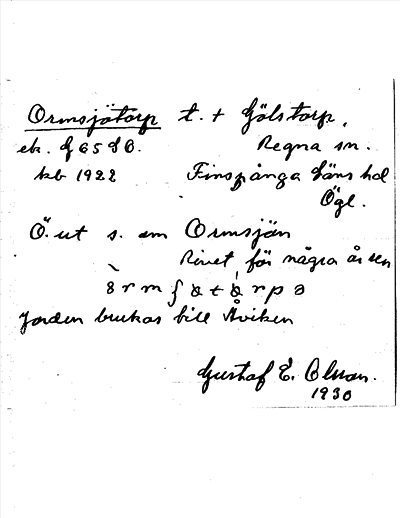 Ormsjötorp t. t Gölstorp,
ek. f 65 d B. Regna sn.
kb 1922 Finspånga läns hd
Ögl.
Ö. ut s. om Ormsjön
Rivet för några år sen
Jorden brukas till Åviken
Gustaf E. Olson.
1930